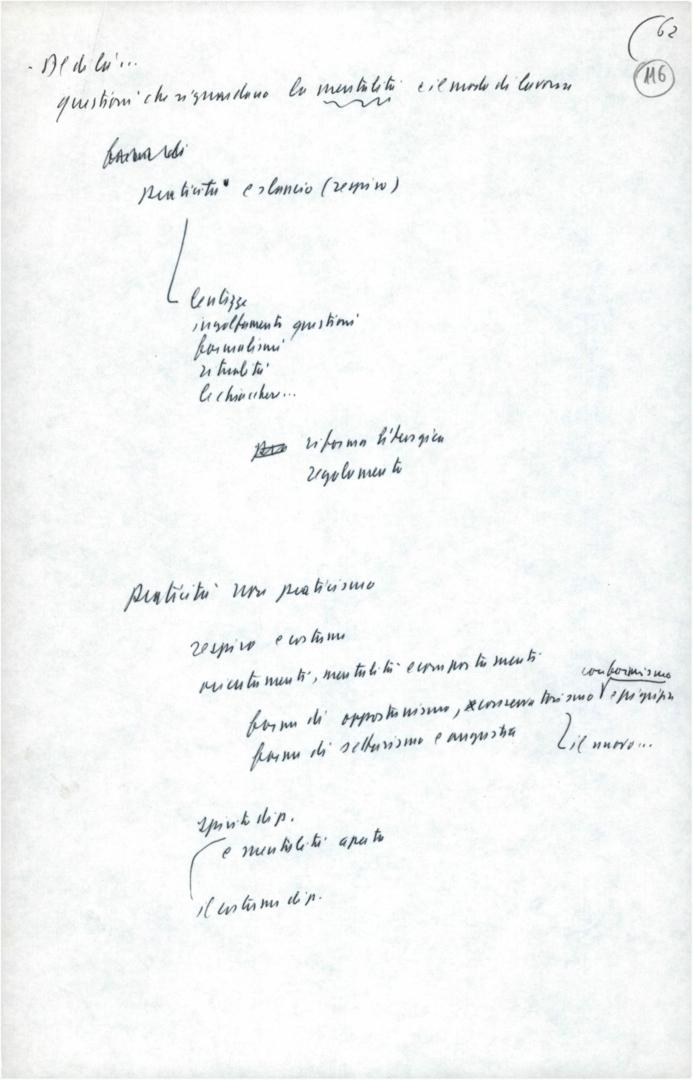 62
116
- Al di là...
questioni che riguardano la mentalità e il modo di lavorare
praticità e slancio (respiro)
lentezze
ingolfamenti questioni
formalismi
ritualità
le chiacchere...
riforma liturgica
regolamento
praticità non praticismo
respiro e costume
orientamenti, mentalità e comportamenti
conformismo
forme di opportunismo, conservatorismo e pigrizia
forme di settarismo e angustia
il nuovo...
spirito di p.
e mentalità aperta
il costume di p.